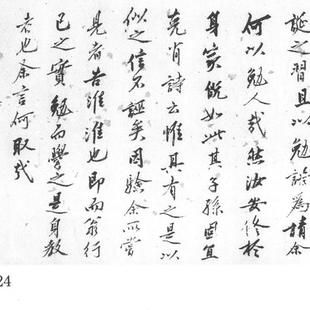 誕之習且以勉為請余
何以勉人哉然汝安於
身家既如此其子孫固宜
克肖詩云惟其有之是以
似之信不誣矣因驗余所嘗
見者告淮淮也即而翁行
己之實勉而學之是身教
者也余言何取哉
24